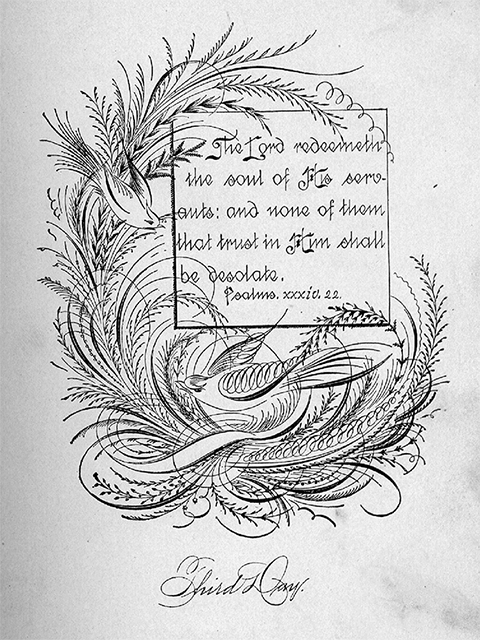 The Lord redeemeth
the soul of His serv-
ants: and none of them
that trust in Him shall
be desolate.
Psalms. xxxiv. 22.
Third Day.